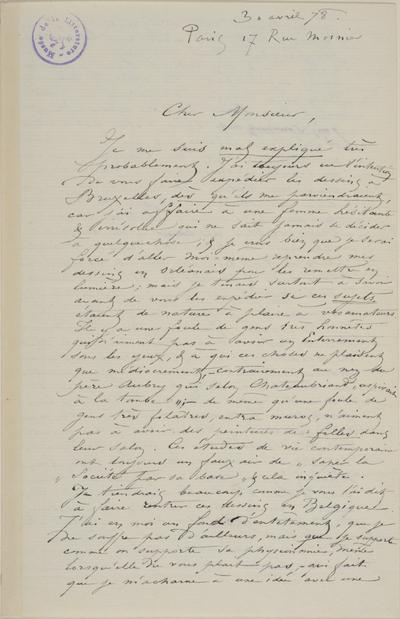 3 avril 78.
Paris 17 Rue Mosnier
Musée de la Littérature
Cher Monsieur,
Je me suis mal expliqué très
probablement. J'ai toujours eu l'intention
de vous faire expédier les dessins à
Bruxelles, dès qu'ils me parviendraient,
car j'ai affaire à une femme hésitante
& irrésolue qui ne sait jamais se décider
à quelque chose, & je crois bien que je serai
forcé d'aller moi-même reprendre mes
dessins en Orléanais pour les remettre en
lumière; mais je tenais surtout à savoir
avant de vous les expédier si ces sujets
étaient de nature à plaire à vos amateurs
Il y a une foule de gens très honnêtes
qui n'aiment pas à avoir un Enterrement
sous les yeux, & à qui ces choses ne plaisent
que médiocrement, contrairement au nez du
père Aubry qui selon Chateaubriand, aspirait
à la tombe" de même qu'une foule de
gens très folâtres, entra muros, n'aiment
pas à avoir des peintures de filles dans
leur salon. Ces études de vie contemporaine
ont toujours un faux air de "saper la
"Société par sa base" & cela inquiète.
Je tiendrais beaucoup, comme je vous l'ai dit
à faire entrer ces dessins en Belgique.
J'ai en moi un fond d'entêtement, que je
ne souffre pas d'ailleurs, mais que je supporte
comme on supporte sa physionomie, même
lorsqu'elle ne vous plaît pas, qui fait
que je m'acharne à une idée avec une